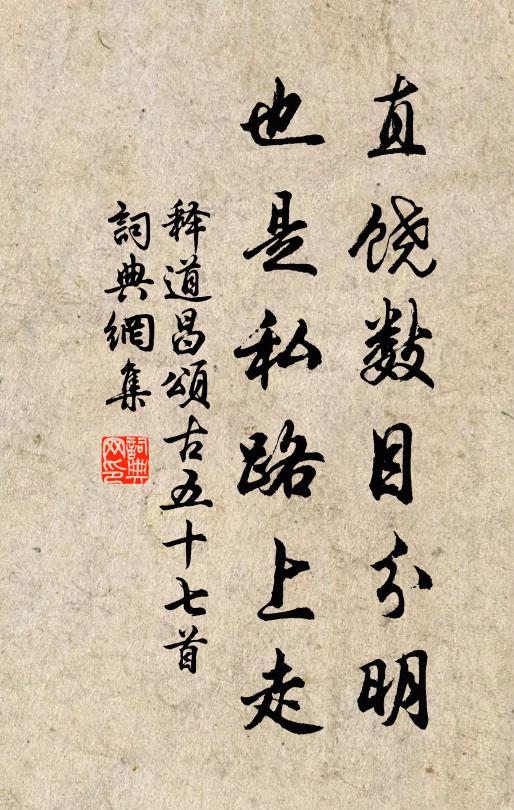 直饶数目分明
也是私路上走
释道昌頌古五十七首
詞典網集
詞典网印